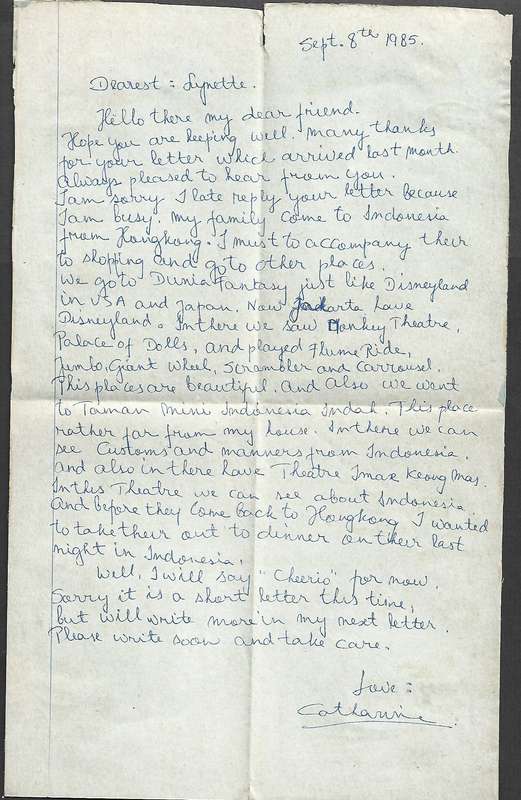 Sept. 8th 1985.
Dearest : Lynette.
Hello there my dear friend.
Hope you are keeping well. many thanks
for your letter which arrived last month.
Always pleased to hear from you.
I am sorry I late reply your letter because
I am busy. my family come to Indonesia
from Hongkong. I must to accompany their
to shopping and go to other places.
we go to Dunia Fantasy just like Disneyland
in USA and Japan. Now Jakarta have
Disneyland. In there we saw Monkey Theatre,
Palace of Dolls, and played Flume Ride,
Jumbo, Giant Wheel, Scrambler and Carrousel.
This places are beautiful. And Also we went
to Taman Mini Indonesia Indah. This place
rather far from my house. In there we can
see Customs and manners from Indonesia.
and also in there have Theatre Imax Keong Mas.
In this Theatre we can see about Indonesia.
And before they come back to Hongkong I wanted
to take their out to dinner on their last
night in Indonesia.
Well, I will say "Cheerio" for now.
Sorry it is a short letter this time,
but will write more in my next letter.
Please write soon and take care.
Love :
Catharine